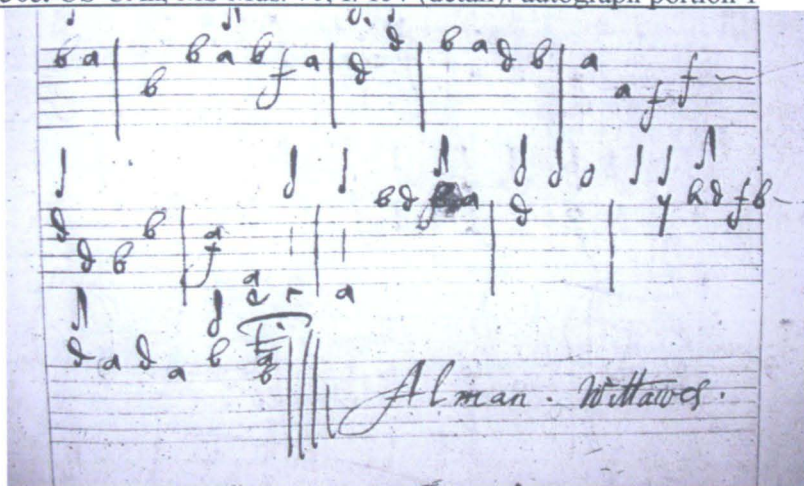 (detail): autograph portion 1
b a b b a b f a d d b a d b a a f f
d d b b a f a r a b d a d y h d f b
d a d a b a b
Alman . Wittawes .